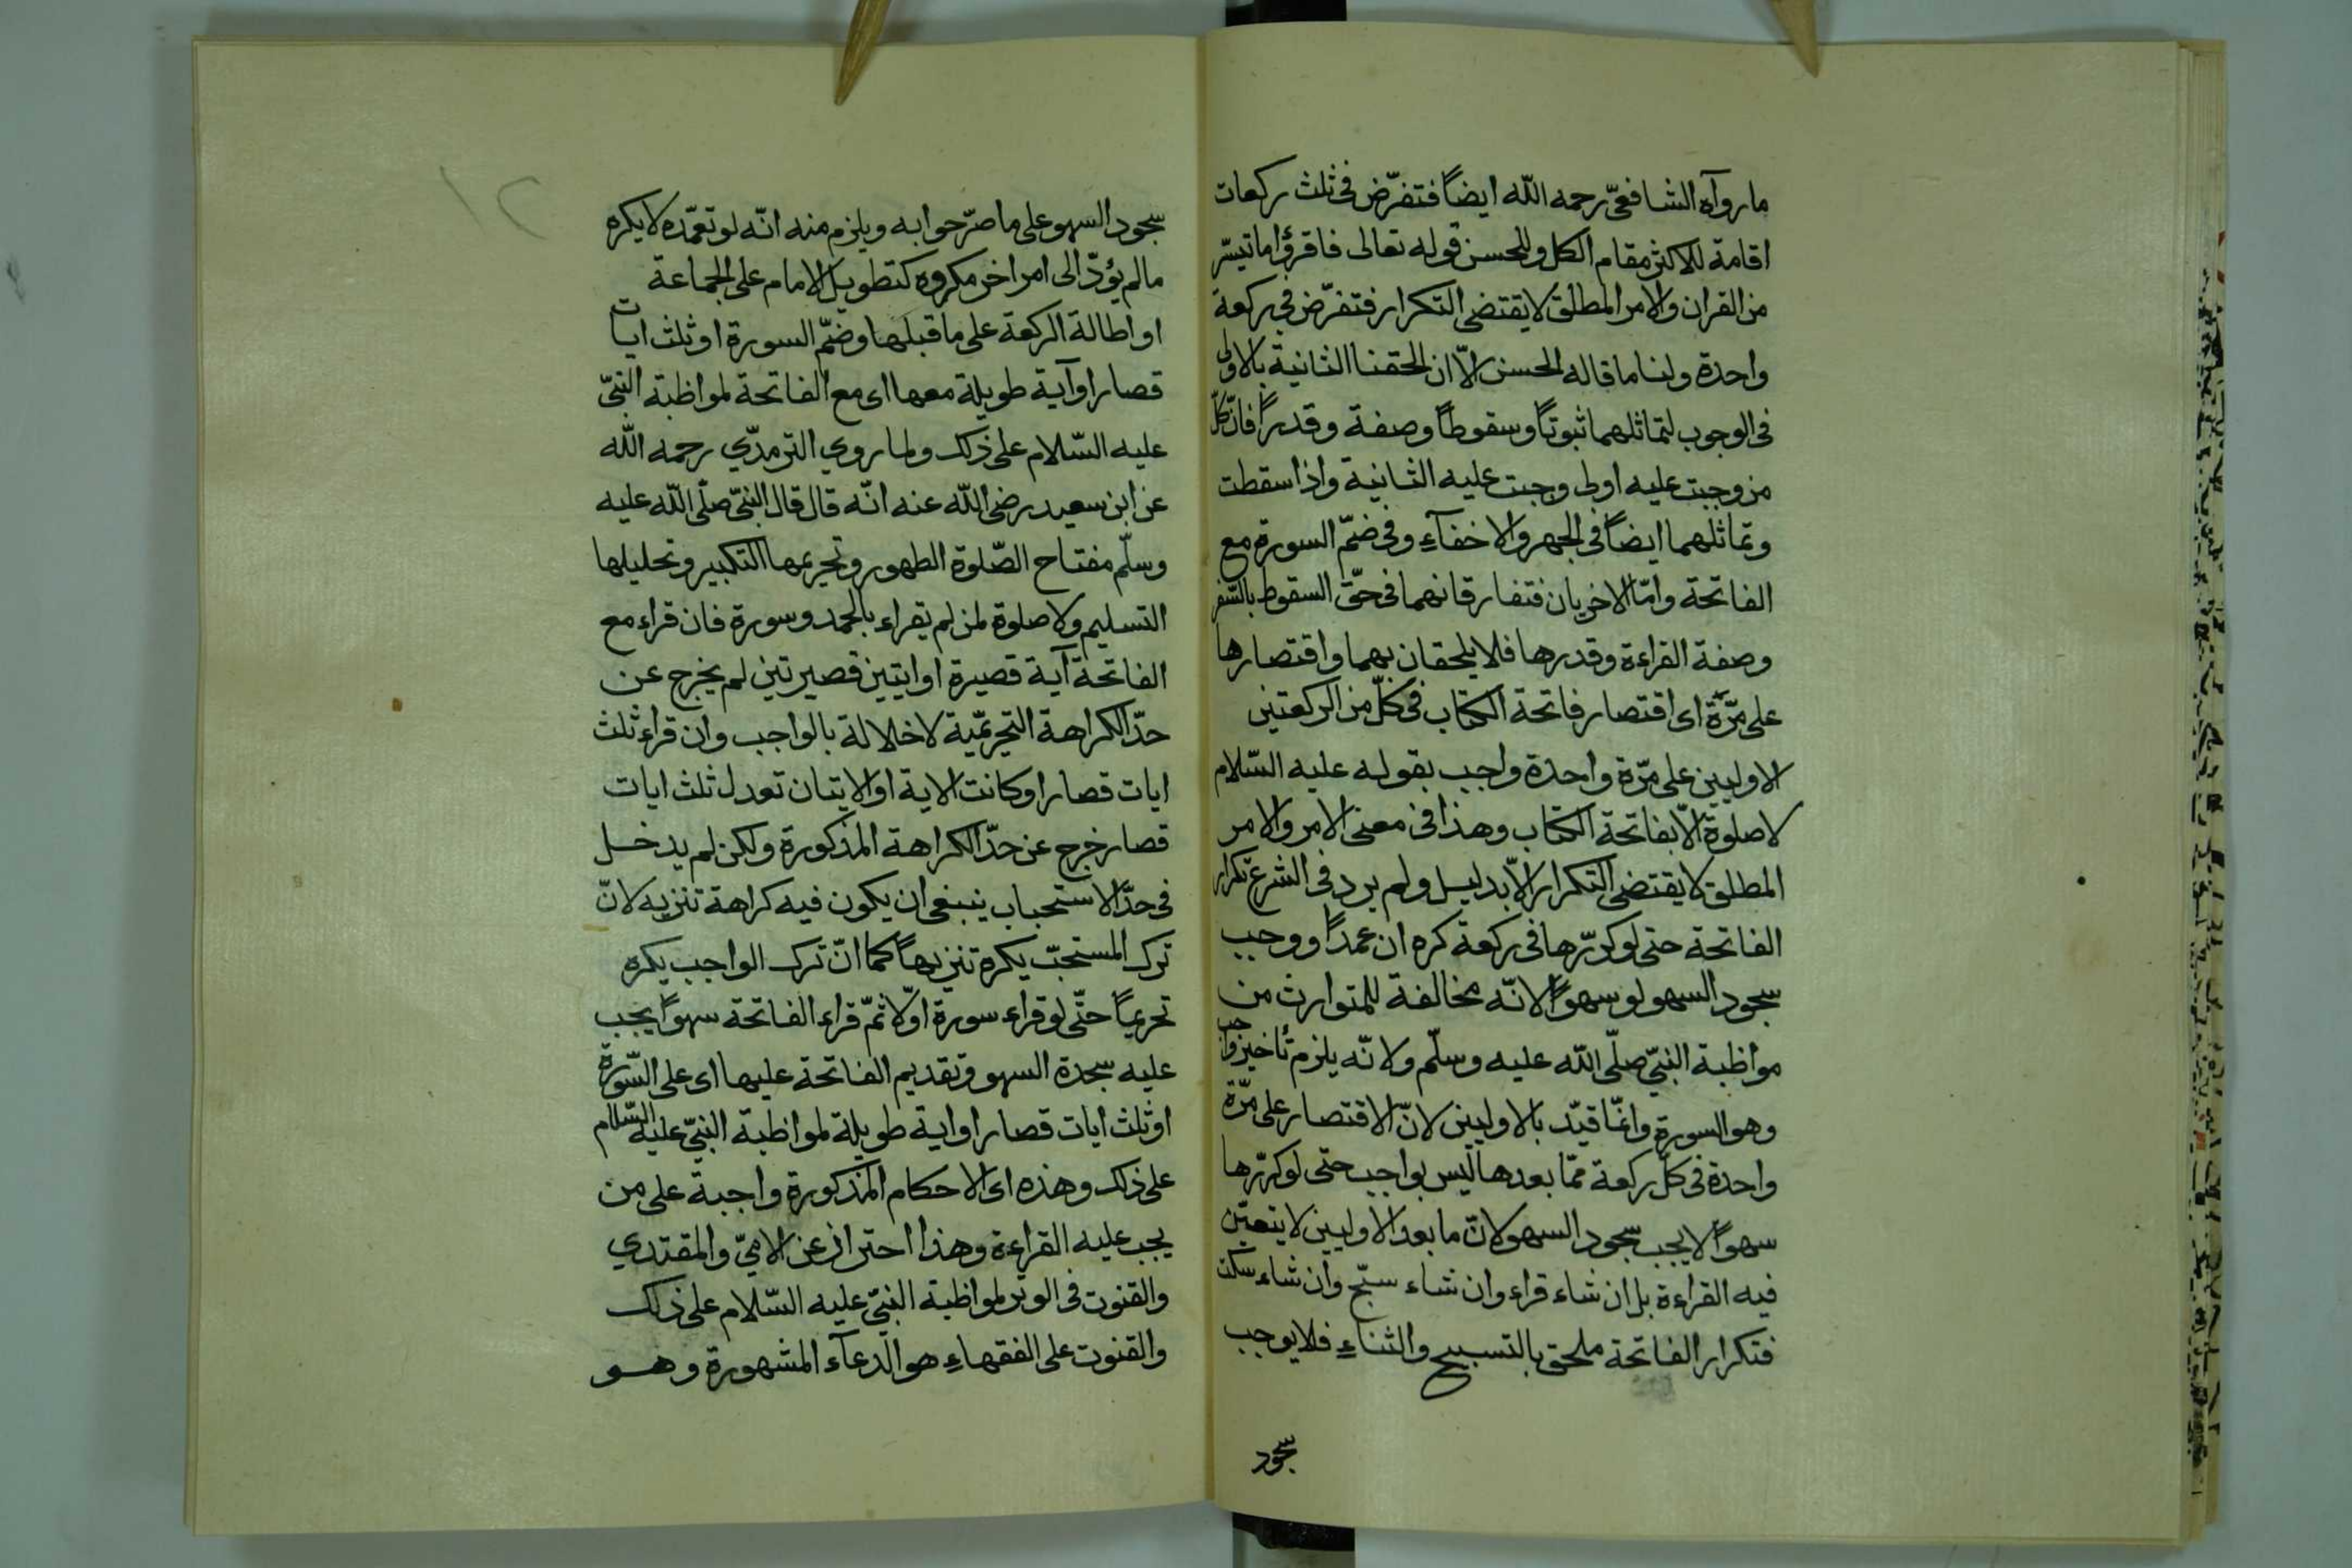 ما رواه الشافعىّ رحمه اللّه ايضاً فتفرّض فى ثلث ركعات
اقامة للاكثر مقام الكل وللحسن قوله تعالى فاقرؤا ما تيسّر
من القران والامر المطلق لا يقتضى التكرار فتفرّض فى ركعة
واحدة ولنا ما قاله الحسن الاّ ان الحقنا الثانية بالاولى
فى الوجوب لتماثلهما ثبوتاً وسقوطاً وصفة وقدراً فانّ كلّ
من وجبت عليه اولى وجبت عليه الثانية واذا سقطت
وتماثلهما ايضاً فى الجهر والاخفآءِ وفى ضمّ السورة مع
الفاتحة وامّا الاخريان فتفارقانهما فى حقّ السقوط بالسّفر
وصفة القراءة وقدرها فلا يلحقان بهما واقتصارها
على مرّة اى اقتصار فاتحة الكتاب فى كلّ من الركعتين
الاوليين على مرّة واحدة واجب بقوله عليه السّلام
لا صلوة الاّ بفاتحة الكتاب وهذا فى معنى الامر والامر
المطلق لا يقتضى التكرار الاّ بدليل ولم يرد فى الشرع تكرار
الفاتحة حتى لو كررّها فى ركعة كره ان عمداً ووجب
سجود السهو لو سهواً لانّه مخالفة للمتوارث من
مواظبة النبىّ صلّى اللّه عليه وسلّم ولانّه يلزم تأخير واجب
وهو السورة وانمّا قيّد بالاوليين لانّ الاقتصار على مرّة
واحدة فى كلّ ركعة ممّا بعدها ليس بواجب حتى لو كررّها
سهواً لا يجب سجود السهو لانّ ما بعد الاوليين لا يتعيّن
فيه القراءة بل ان شاء قراء وان شاء سبّح وان شاء سكت
فتكرار الفاتحة ملحق بالتسبيح والثناءِ فلا يوجب
سجود
١٢
سجود السهو على ما صرّحوا به ويلزم منه انّه لو تعمّده لا يكره
ما لم يؤدّ الى امر اخر مكروه كتطويل الامام على الجماعة
او اطالة الركعة على ما قبلها وضمّ السورة او ثلث ايات
قصار او آية طويلة معها اى مع الفاتحة لمواظبة النبىّ
عليه السّلام على ذلك ولما روي الترمذّي رحمه اللّه
عن ابن سعيد رضى اللّه عنه انّه قال قال النبىّ صلّى اللّه عليه
وسلّم مفتاح الصّلوة الطهور وتحريمها التكبير وتحليلها
التسليم ولا صلوة لمن لم يقراء بالحمد وسورة فان قراء مع
الفاتحة آية قصيرة او ايتين قصيرتين لم يخرج عن
حدّ الكراهة التحريميّة لاخلالة بالواجب وان قراء ثلث
ايات قصار او كانت الاية او الايتان تعدل ثلث ايات
قصار خرج عن حدّ الكراهة المذكورة ولكن لم يدخل
فى حدّ الاستحباب ينبغى ان يكون فيه كراهة تنزيه لانّ
ترك المستحبّ يكره تنزيهاً كما انّ ترك الواجب يكره
تحريماً حتّى لو قراء سورة اوّلا ثمّ قراء الفاتحة سهواً يجب
عليه سجدة السهو وتقديم الفاتحة عليها اى على السّورة
او ثلث ايات قصار او اية طويلة لمواظبة النبىّ عليه السّلام
على ذلك وهذه اى الاحكام المذكورة واجبة على من
يجب عليه القراءة وهذا احتراز عن الامىّ والمقتدي
والقنوت فى الوتر لمواظبة النبىّ عليه السّلام على ذلك
والقنوت على الفقهاءِ هو الدعآء المشهورة وهو